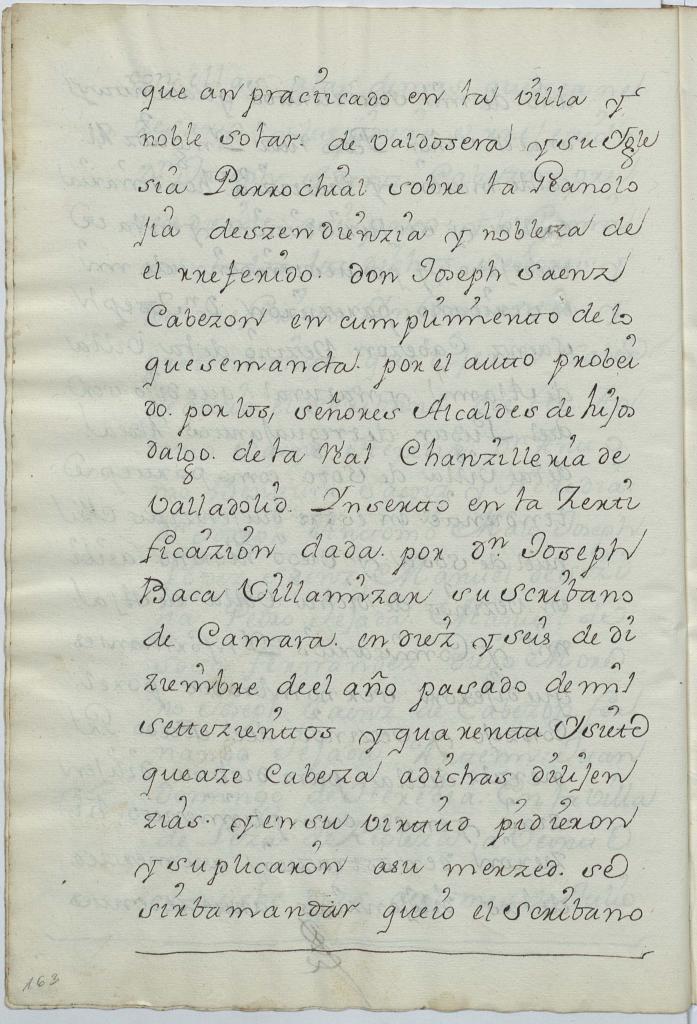 que an practicado en la villa y
noble solar. de valdosera y su Ygle
sia Parrochial sobre la Geanolo
jia deszendienzia y nobleza de
el rreferido. don Joseph saenz
Cabezon en cumplimientto de lo
quesemanda. por el autto probei
do. por los, señores Alcaldes de hijos
dalgo. de la Real Chanzilleria de
valladolid. Ynsertto en la Zerti
ficazion dada. por dn. Joseph
Baca Villamizar su scribano
de Camara. en diez y seis de di
ziembre deel año pasado demil
settezienttos y quarentta Ysiete
queaze Cabeza adichas dilijen
zias. y en su virttud pidieron
y suplicaron asu merzed. se
sirbamandar queio el scribano
163